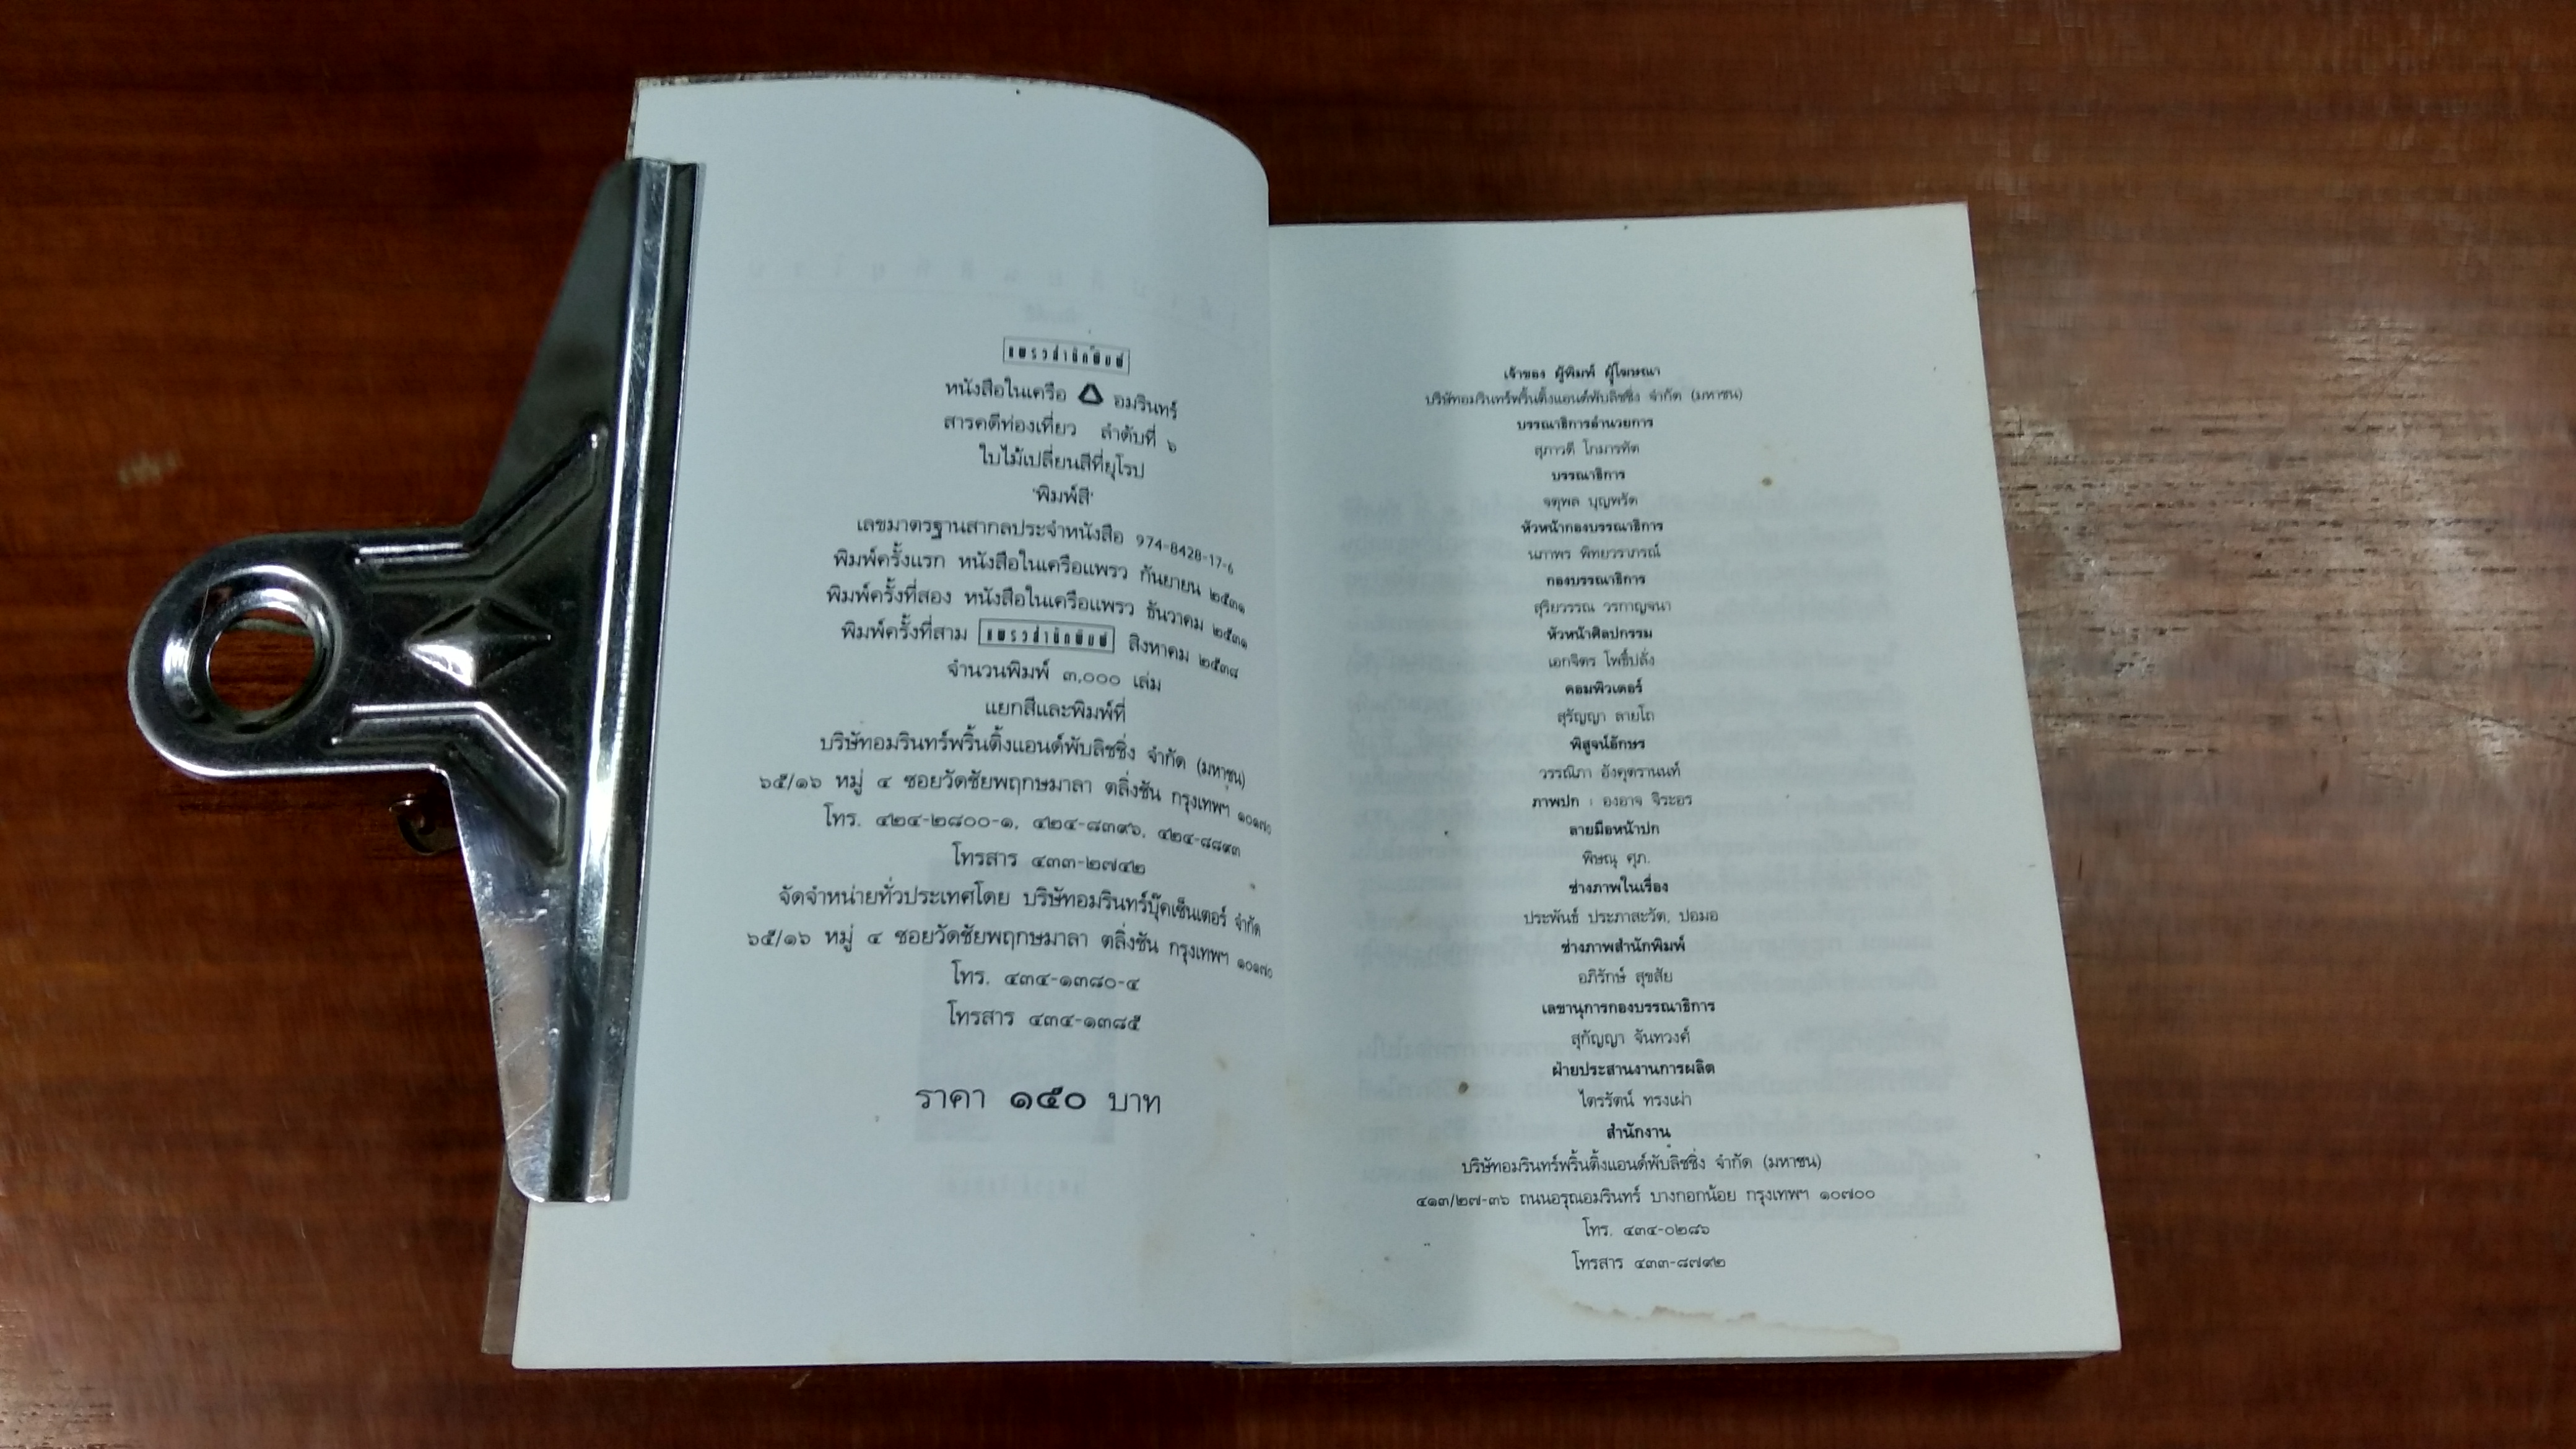 แพรวสำนักพิมพ์
หนังสือในเครือ อมรินทร์
สารคดีท่องเที่ยว ลำดับที่ ๖
ใบไม้เปลี่ยนสีที่ยุโรป
'พิมพ์สี'
เลขมาตรฐานสากลประจำหนังสือ 974-8428-17-6
พิมพ์ครั้งแรก หนังสือในเครือแพรว กันยายน ๒๕๓๑
พิมพ์ครั้งที่สอง หนังสือในเครือแพรว ธันวาคม ๒๕๓๑
พิมพ์ครั้งที่สาม แพรวสำนักพิมพ์ สิงหาคม ๒๕๓๘
จำนวนพิมพ์ ๓,๐๐๐ เล่ม
แยกสีและพิมพ์ที่
บริษัทอมรินทร์พริ้นติ้งแอนด์พับลิชชิ่ง จำกัด (มหาชน)
๖๕/๑๖ หมู่ ๔ ซอยวัดชัยพฤกษมาลา ตลิ่งชัน กรุงเทพฯ ๑๐๑๗๐
โทร. ๔๒๔-๒๘๐๐-๑, ๔๒๔-๘๓๙๖, ๔๒๔-๘๘๙๓
โทรสาร ๔๓๓-๒๗๔๒
จัดจำหน่ายทั่วประเทศโดย บริษัทอมรินทร์บุ๊คเซ็นเตอร์ จำกัด
๖๕/๑๖ หมู่ ๔ ซอยวัดชัยพฤกษมาลา ตลิ่งชัน กรุงเทพฯ ๑๐๑๗๐
โทร. ๔๓๔-๑๓๘๐-๔
โทรสาร ๔๓๔-๑๓๘๕
ราคา ๑๕๐ บาท
เจ้าของ ผู้พิมพ์ ผู้โฆษณา
บริษัทอมรินทร์พริ้นติ้งแอนด์พับลิชชิ่ง จำกัด (มหาชน)
บรรณาธิการอำนวยการ
สุภาวดี โกมารทัต
บรรณาธิการ
จตุพล บุญพรัด
หัวหน้ากองบรรณาธิการ
นภาพร พิทยวราภรณ์
กองบรรณาธิการ
สุริยวรรณ วรกาญจนา
หัวหน้าศิลปกรรม
เอกจิตร โพธิ์ปลั่ง
คอมพิวเตอร์
สุรัญญา ลายโถ
พิสูจน์อักษร
วรรณิภา อังคุตรานนท์
ภาพปก : องอาจ จิระอร
ลายมือหน้าปก
พิษณุ ศุภ.
ช่างภาพในเรื่อง
ประพันธ์ ประภาสะวัต, ปอมอ
ช่างภาพสำนักพิมพ์
อภิรักษ์ สุขสัย
เลขานุการกองบรรณาธิการ
สุกัญญา จันทวงศ์
ฝ่ายประสานงานการผลิต
ไตรรัตน์ ทรงเผ่า
สำนักงาน
บริษัทอมรินทร์พริ้นติ้งแอนด์พับลิชชิ่ง จำกัด (มหาชน)
๔๑๓/๒๗-๓๖ ถนนอรุณอมรินทร์ บางกอกน้อย กรุงเทพฯ ๑๐๗๐๐
โทร. ๔๓๔-๐๒๘๖
โทรสาร ๔๓๓-๘๗๙๒